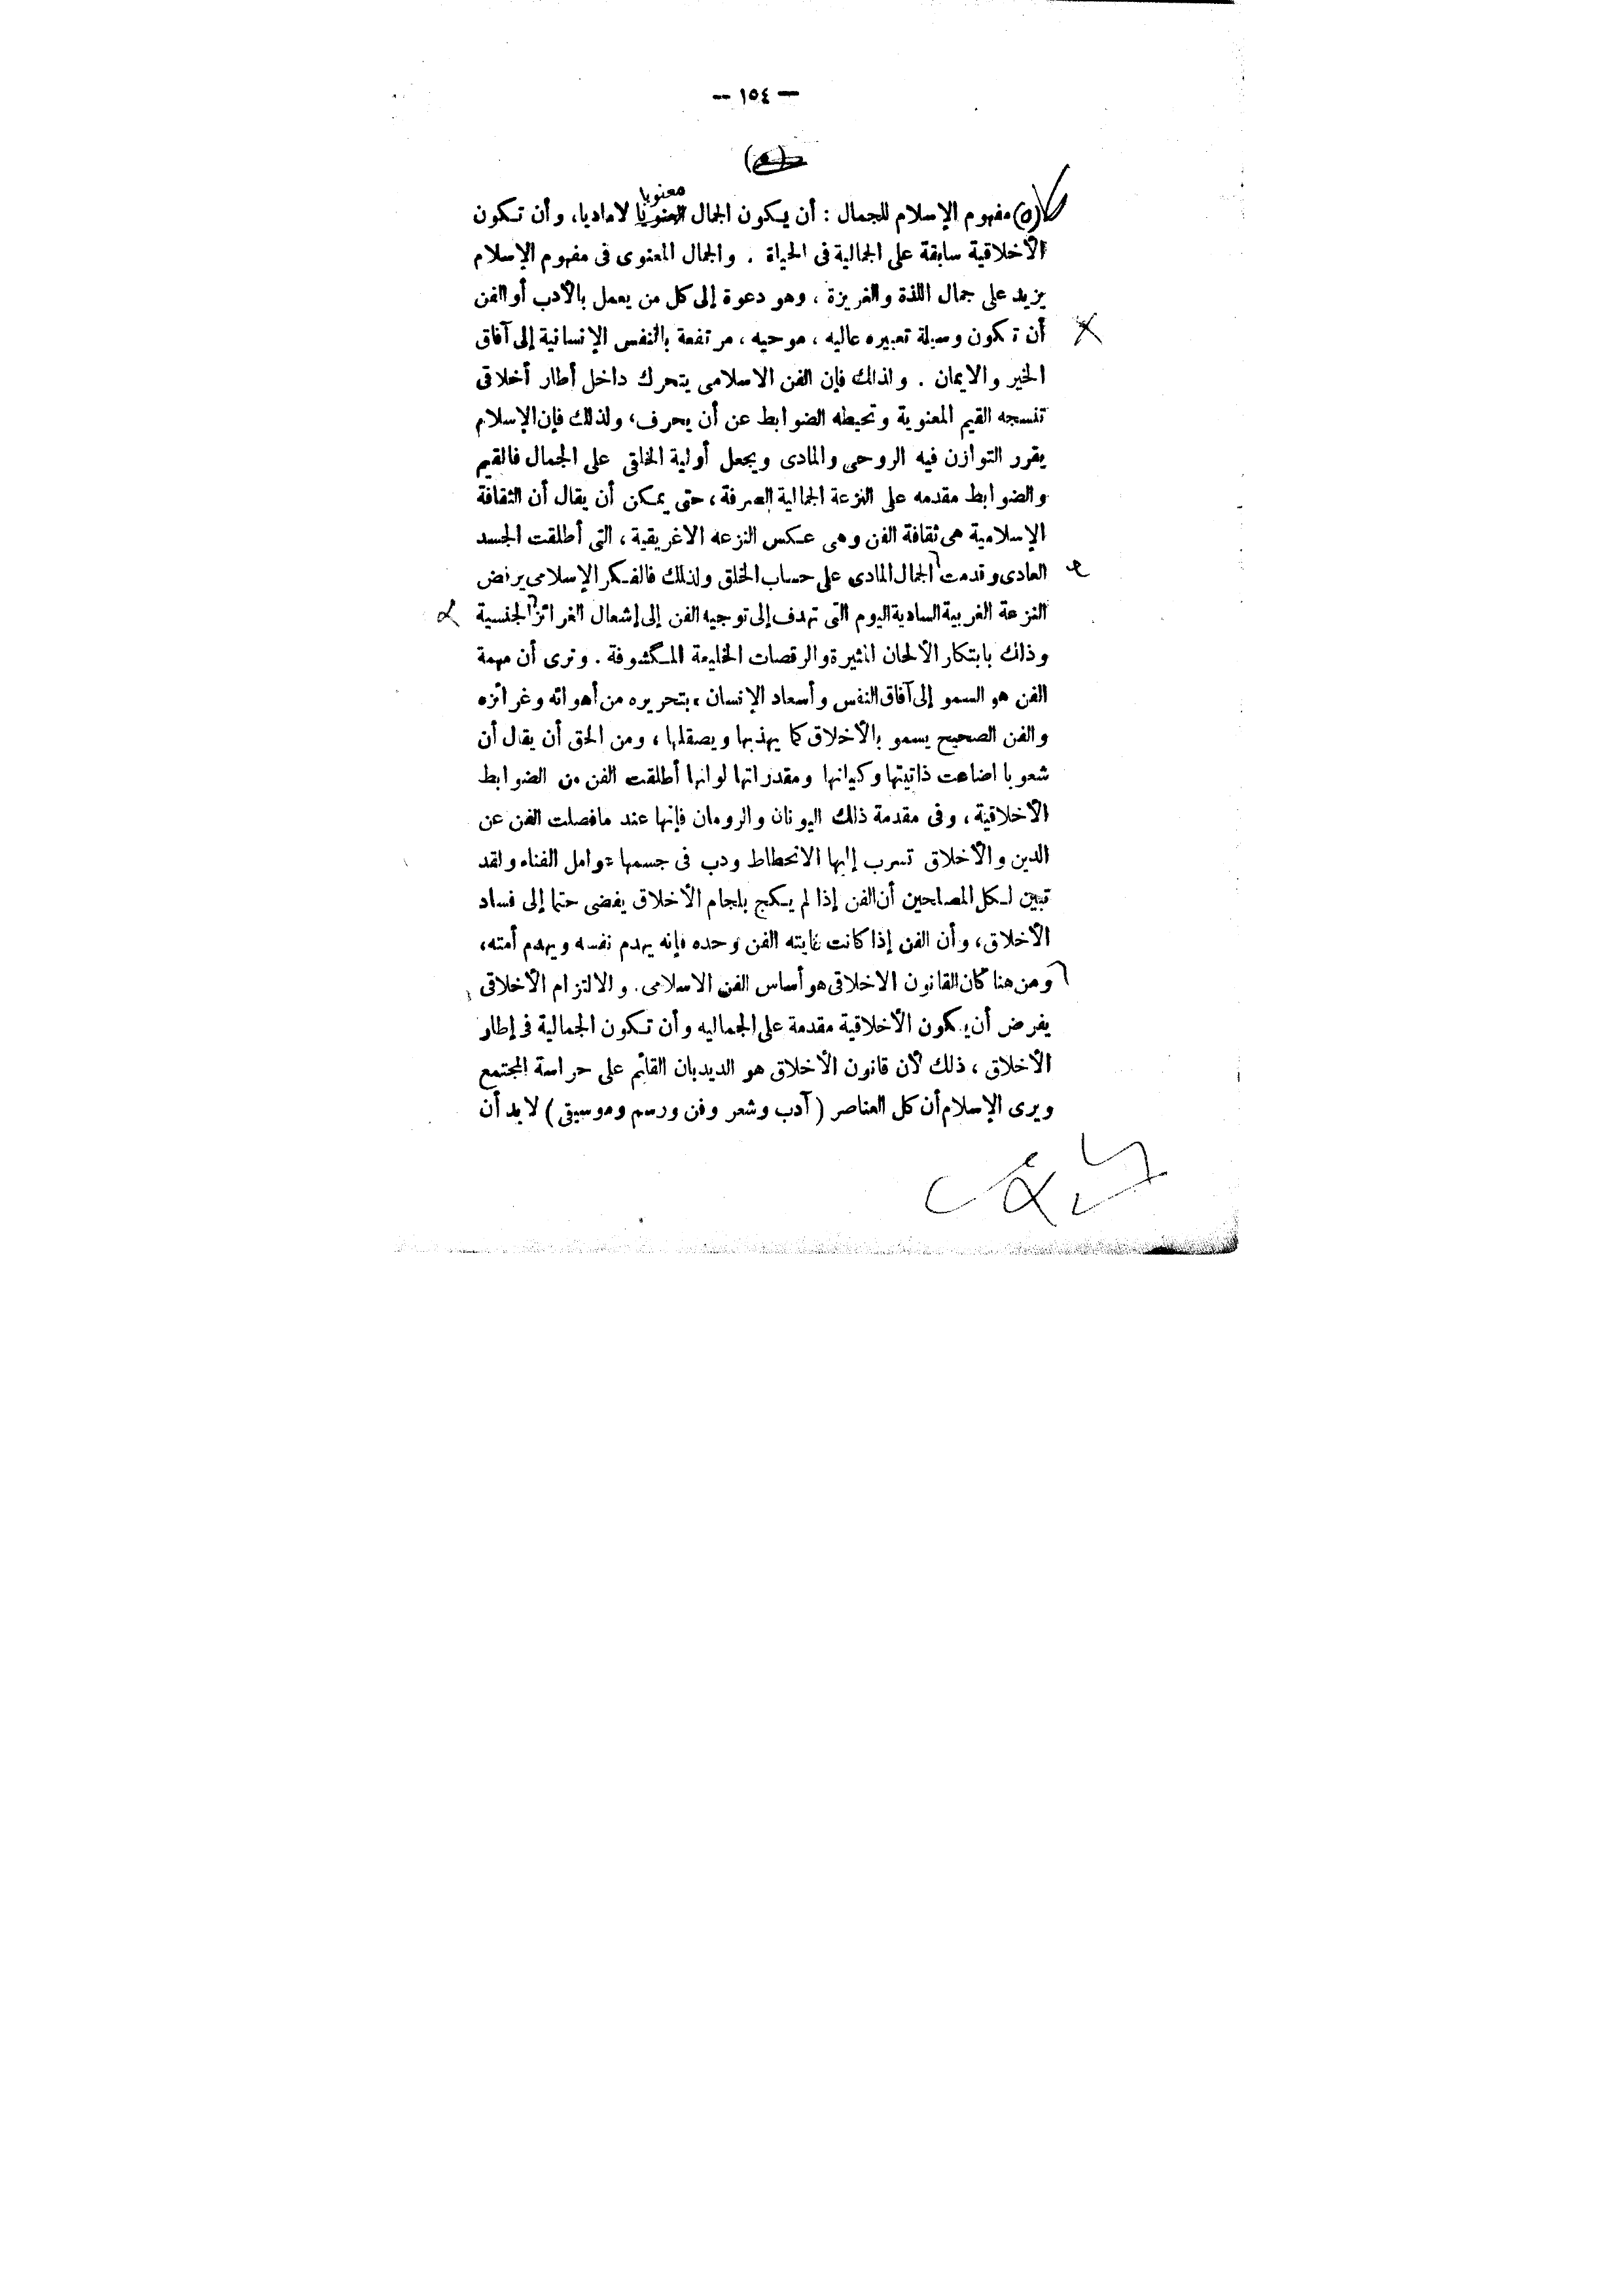 — ١٥٤ —
(٥)
معنويا
(٥) مفهوم الإسلام للجمال : أن يكون الجمال لا ماديا، وأن تكون
الأخلاقية سابقة على الجمالية فى الحياة . والجمال المعنوى فى مفهوم الإسلام
يزيد على جمال اللذة والغريزة ، وهو دعوة إلى كل من يعمل بالأدب أو الفن
أن تكون وسيلة تعبيره عاليه ، موحيه ، مرتفعة بالنفس الإنسانية إلى آفاق
الخير والايمان . ولذلك فإن الفن الاسلامى يتحرك داخل أطار أخلاقى
تنسجه القيم المعنوية وتحيطه الضوابط عن أن يحرف، ولذلك فإن الإسلام
يقرر التوازن فيه الروحى والمادى ويجعل أولية الخلقى على الجمال فالقيم
والضوابط مقدمه على النزعة الجمالية الصرفة ، حتى يمكن أن يقال أن الثقافة
الإسلامية هى ثقافة الفن وهى عكس النزعه الاغريقية ، التى أطلقت الجسد
العادى وقدمت الجمال المادى على حساب الخلق ولذلك فالفكر الإسلامى يرفض
النزعة الغربية السادية اليوم التى تهدف إلى توجيه الفن إلى إشعال الغرائز الجنسية
وذلك بابتكار الألحان المثيرة والرقصات الخليعة المكشوفة . وترى أن مهمة
الفن هو السمو إلى آفاق النفس وأسعاد الإنسان ، بتحريره من أهوائه وغرائزه
والفن الصحيح يسمو بالأخلاق كما يهذبها ويصقلها ، ومن الحق أن يقال أن
شعوبا اضاعت ذاتيتها وكيانها ومقدراتها لوانها أطلقت الفن من الضوابط
الأخلاقية ، وفى مقدمة ذلك اليونان والرومان فإنها عند مافصلت الفن عن
الدين والأخلاق تسرب إليها الانحطاط ودب فى جسمها عوامل الفناء ولقد
تبين لكل المصلحين أن الفن إذا لم يكبح بلجام الأخلاق يفضى حتما إلى فساد
الأخلاق، وأن الفن إذا كانت غايته الفن وحده فإنه يهدم نفسه ويهدم أمته،
ومن هنا كان القانون الاخلاقى هو أساس الفن الاسلامى. والالتزام الأخلاقى
يفرض أن يكون الأخلاقية مقدمة على الجماليه وأن تكون الجمالية فى إطار
الأخلاق ، ذلك لأن قانون الأخلاق هو الديدبان القائم على حراسة المجتمع
ويرى الإسلام أن كل العناصر ( آدب وشعر وفن ورسم وموسيقى ) لابد أن